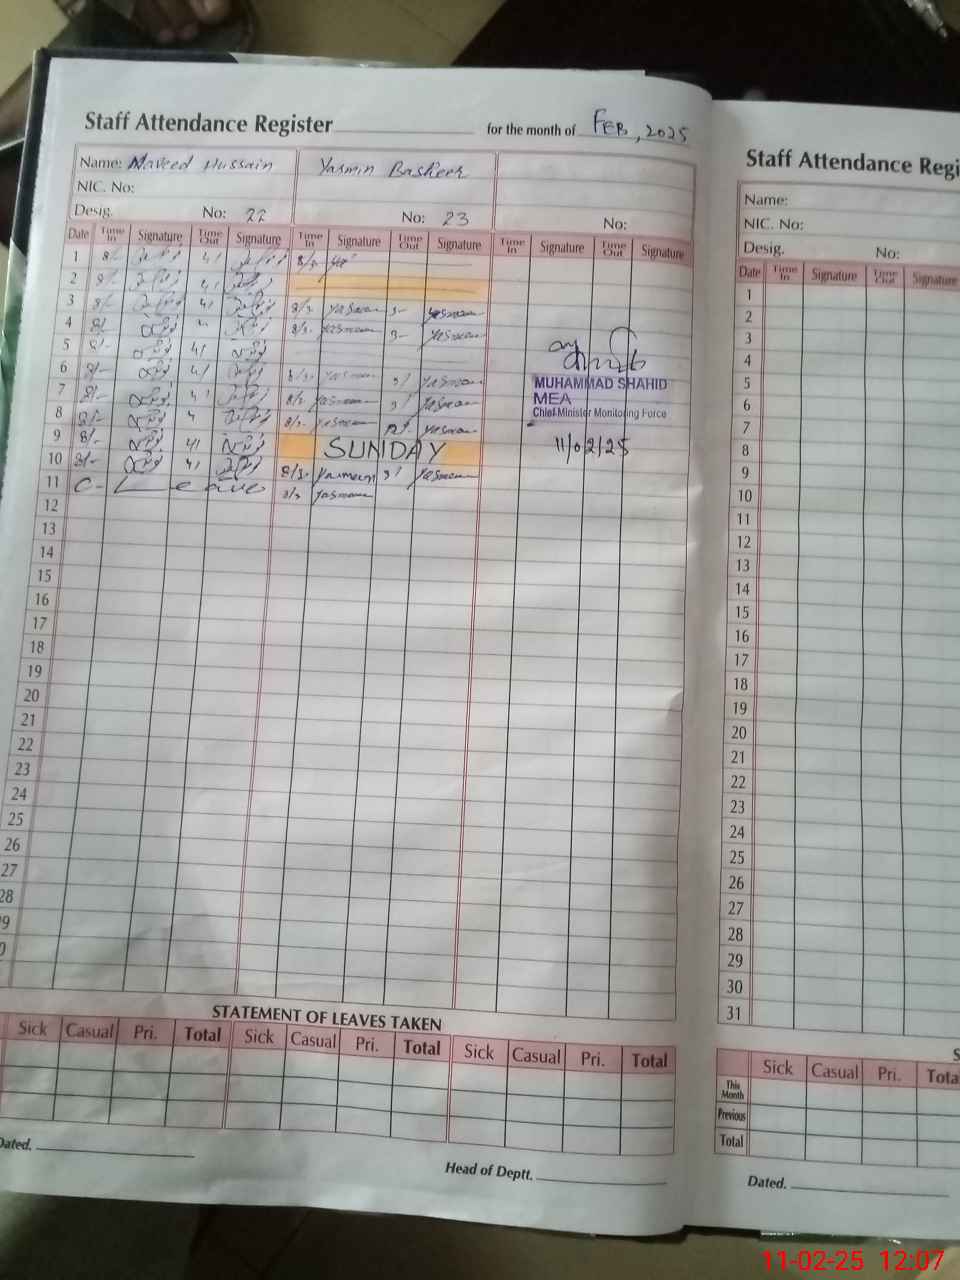 Staff Attendance Register for the month of FEB, 2025
Name: Naveed Hussain Yasmin Basheer
NIC. No:
Desig. No: 22 No: 23 No:
Date Time In Signature Time Out Signature Time In Signature Time Out Signature Time In Signature Time Out Signature
1 8/- 4/ 8/3.
2 8/- 4/
3 8/- 4/ 8/3. Yasmeen 3- Yasmeen
4 8/ 4 8/3. Yasmeen 3- Yasmeen
5 8/- 4/
6 8/- 4/ 8/3. Yasmeen 3/ Yasmeen
7 8/- 4/ 8/3. Yasmeen 3/ Yasmeen
8 8/- 4 8/3. Yasmeen Yasmeen
9 8/- 4/ SUNDAY
10 8/- 4/ 8/3. Yasmeen 3/ Yasmeen
11 C- Leave 8/3 Yasmeen
12
13
14
15
16
17
18
19
20
21
22
23
24
25
26
27
28
9
0
MUHAMMAD SHAHID
MEA
Chief Minister Monitoring Force
11/02/25
STATEMENT OF LEAVES TAKEN
Sick Casual Pri. Total Sick Casual Pri. Total Sick Casual Pri. Total
Dated.
Head of Deptt.
Staff Attendance Regi
Name:
NIC. No:
Desig. No:
Date Time In Signature Time Out Signature
1
2
3
4
5
6
7
8
9
10
11
12
13
14
15
16
17
18
19
20
21
22
23
24
25
26
27
28
29
30
31
S
Sick Casual Pri. Tota
This Month
Previous
Total
Dated.
11-02-25 12:07